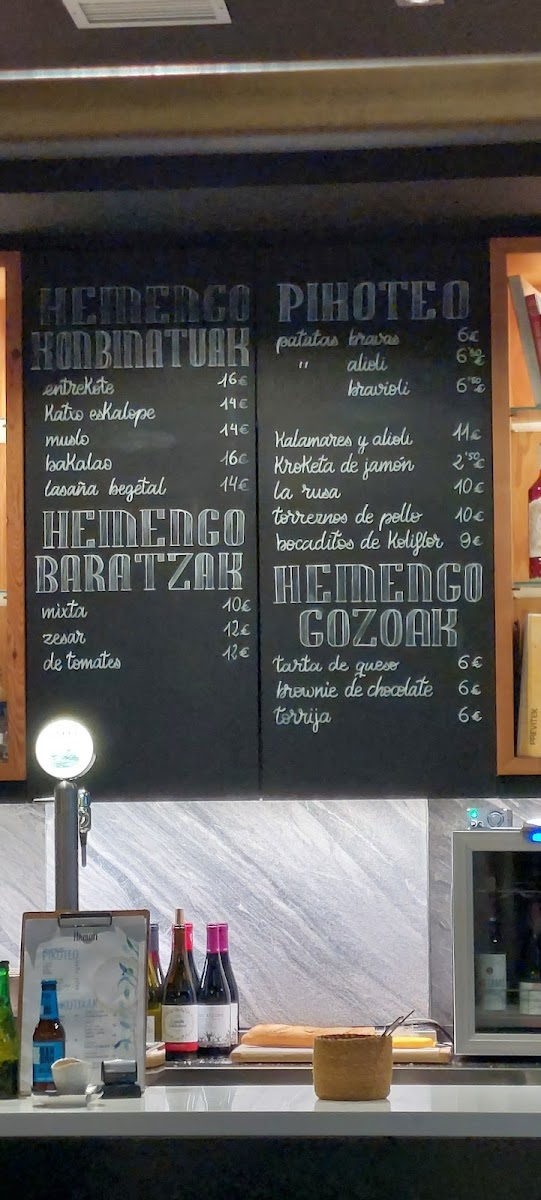 HEMENGO
KONBINATUAK
entrekote 16€
Katxo eskalope 14€
muslo 14€
bakalao 16€
lasaña begetal 14€
HEMENGO
BARATZAK
mixta 10€
zesar 12€
de tomates 12€
PIKOTEO
patatas bravas 6€
" alioli 6'50€
bravioli 6'50€
Kalamares y alioli 11€
Kroketa de jamón 2'50€
la rusa 10€
torreznos de pollo 10€
bocaditos de Koliflor 9€
HEMENGO
GOZOAK
tarta de queso 6€
brownie de chocolate 6€
torrija 6€
PIKOTEO